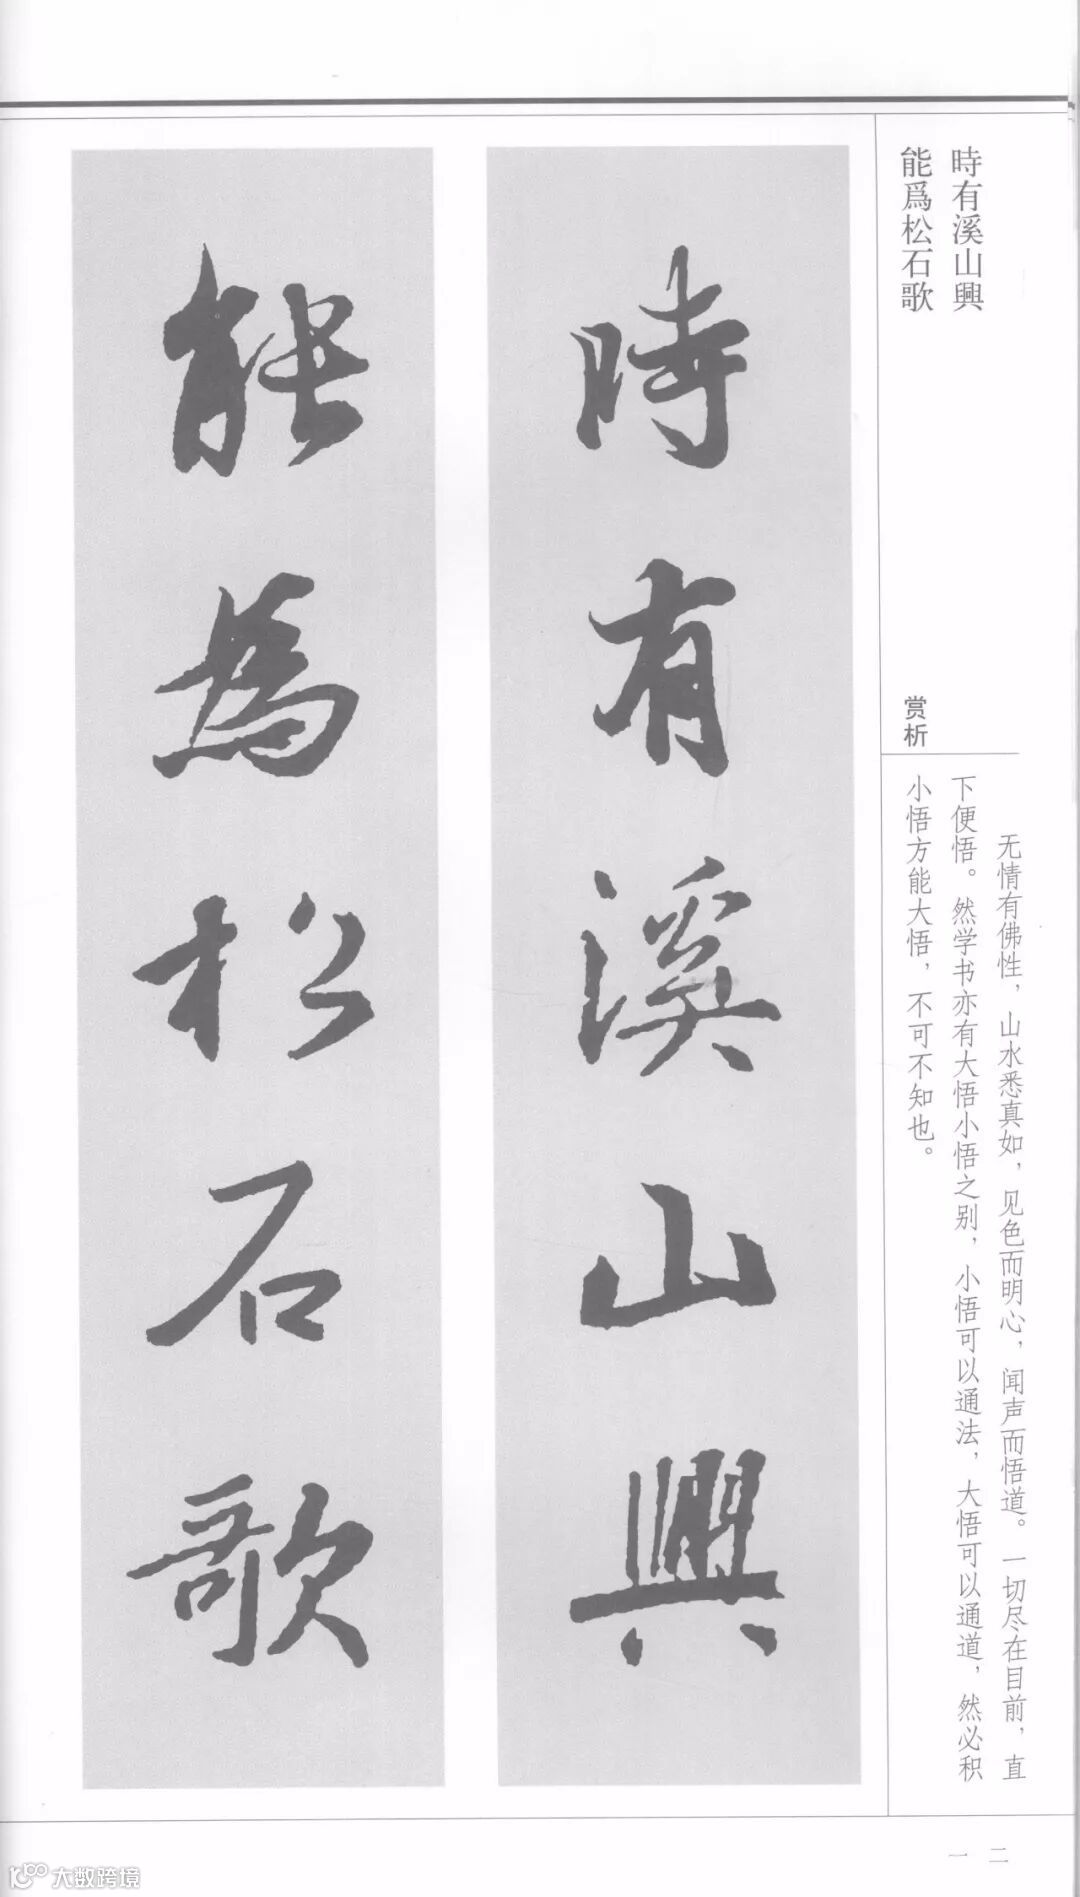 時有溪山興
能爲松石歌
赏析
无情有佛性，山水悉真如，见色而明心，闻声而悟道。一切尽在目前，直
下便悟。然学书亦有大悟小悟之别，小悟可以通法，大悟可以通道，然必积
小悟方能大悟，不可不知也。
時有溪山興
能為松石歌
一二
大数跨境